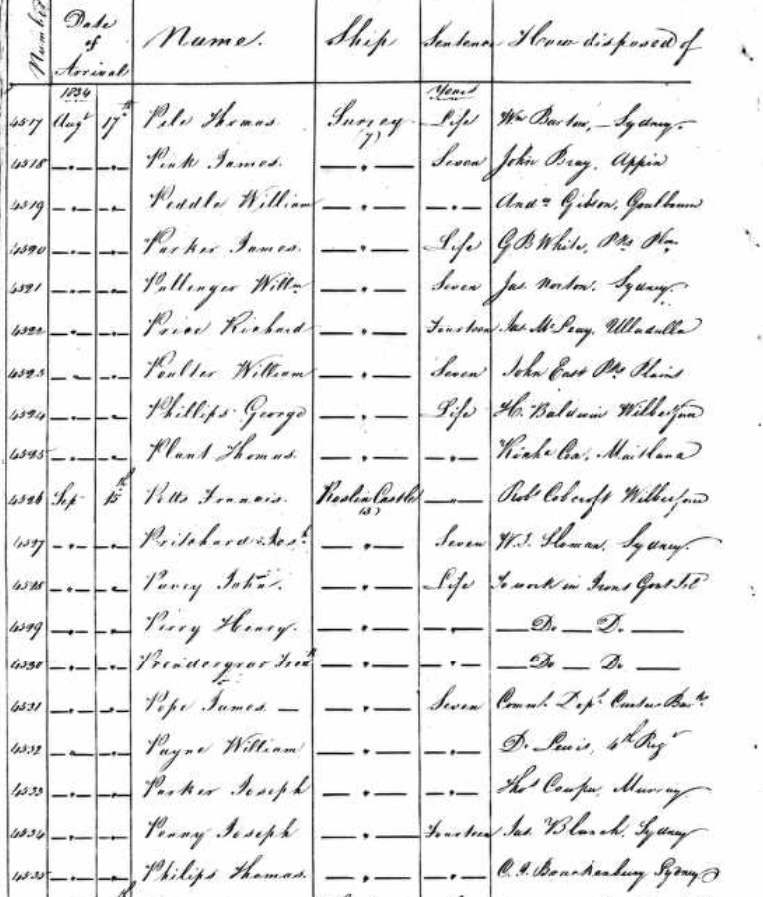 Number Date of Arrival Name. Ship Sentence How disposed of
1834 Years
4517 Augt 17th Pile Thomas Surrey (7) Life Wm Barton, Sydney.
4518 " " Pink James. " Seven John Bray, Appin
4519 " " Peddle William " " Andw Gibson, Goulburn
4520 " " Parker James. " Life G B White, Pks Pln
4521 " " Pullenger Willm " Seven Jas. Norton. Sydney.
4522 " " Price Richard " Fourteen Jas. McLeay, Ulladulla
4523 " " Poulter William " Seven John East Pks Plains
4524 " " Phillips George " Life H. Baldwin Wilberforce
4525 " " Plant Thomas. " " Maitland
4526 Sep 15th Potts Francis. Roslin Castle (3) " Robt Cobcroft Wilberforce
4527 " " Pritchard Josh " Seven W. J. Sloman, Sydney.
4528 " " Purcy John. " Life To work in Irons Govt
4529 " " Perry Henry. " " Do Do
4530 " " Prendergras " " Do Do
4531 " " Pope James " Seven Dept
4532 " " Payne William " " D. Lewis, 4th Regt
4533 " " Parker Joseph " " Thos Cowper, Murray
4534 " " Penny Joseph " Fourteen Jas. Blanch, Sydney
4535 " " Philips Thomas. " " C. J. Brackenbury Sydney